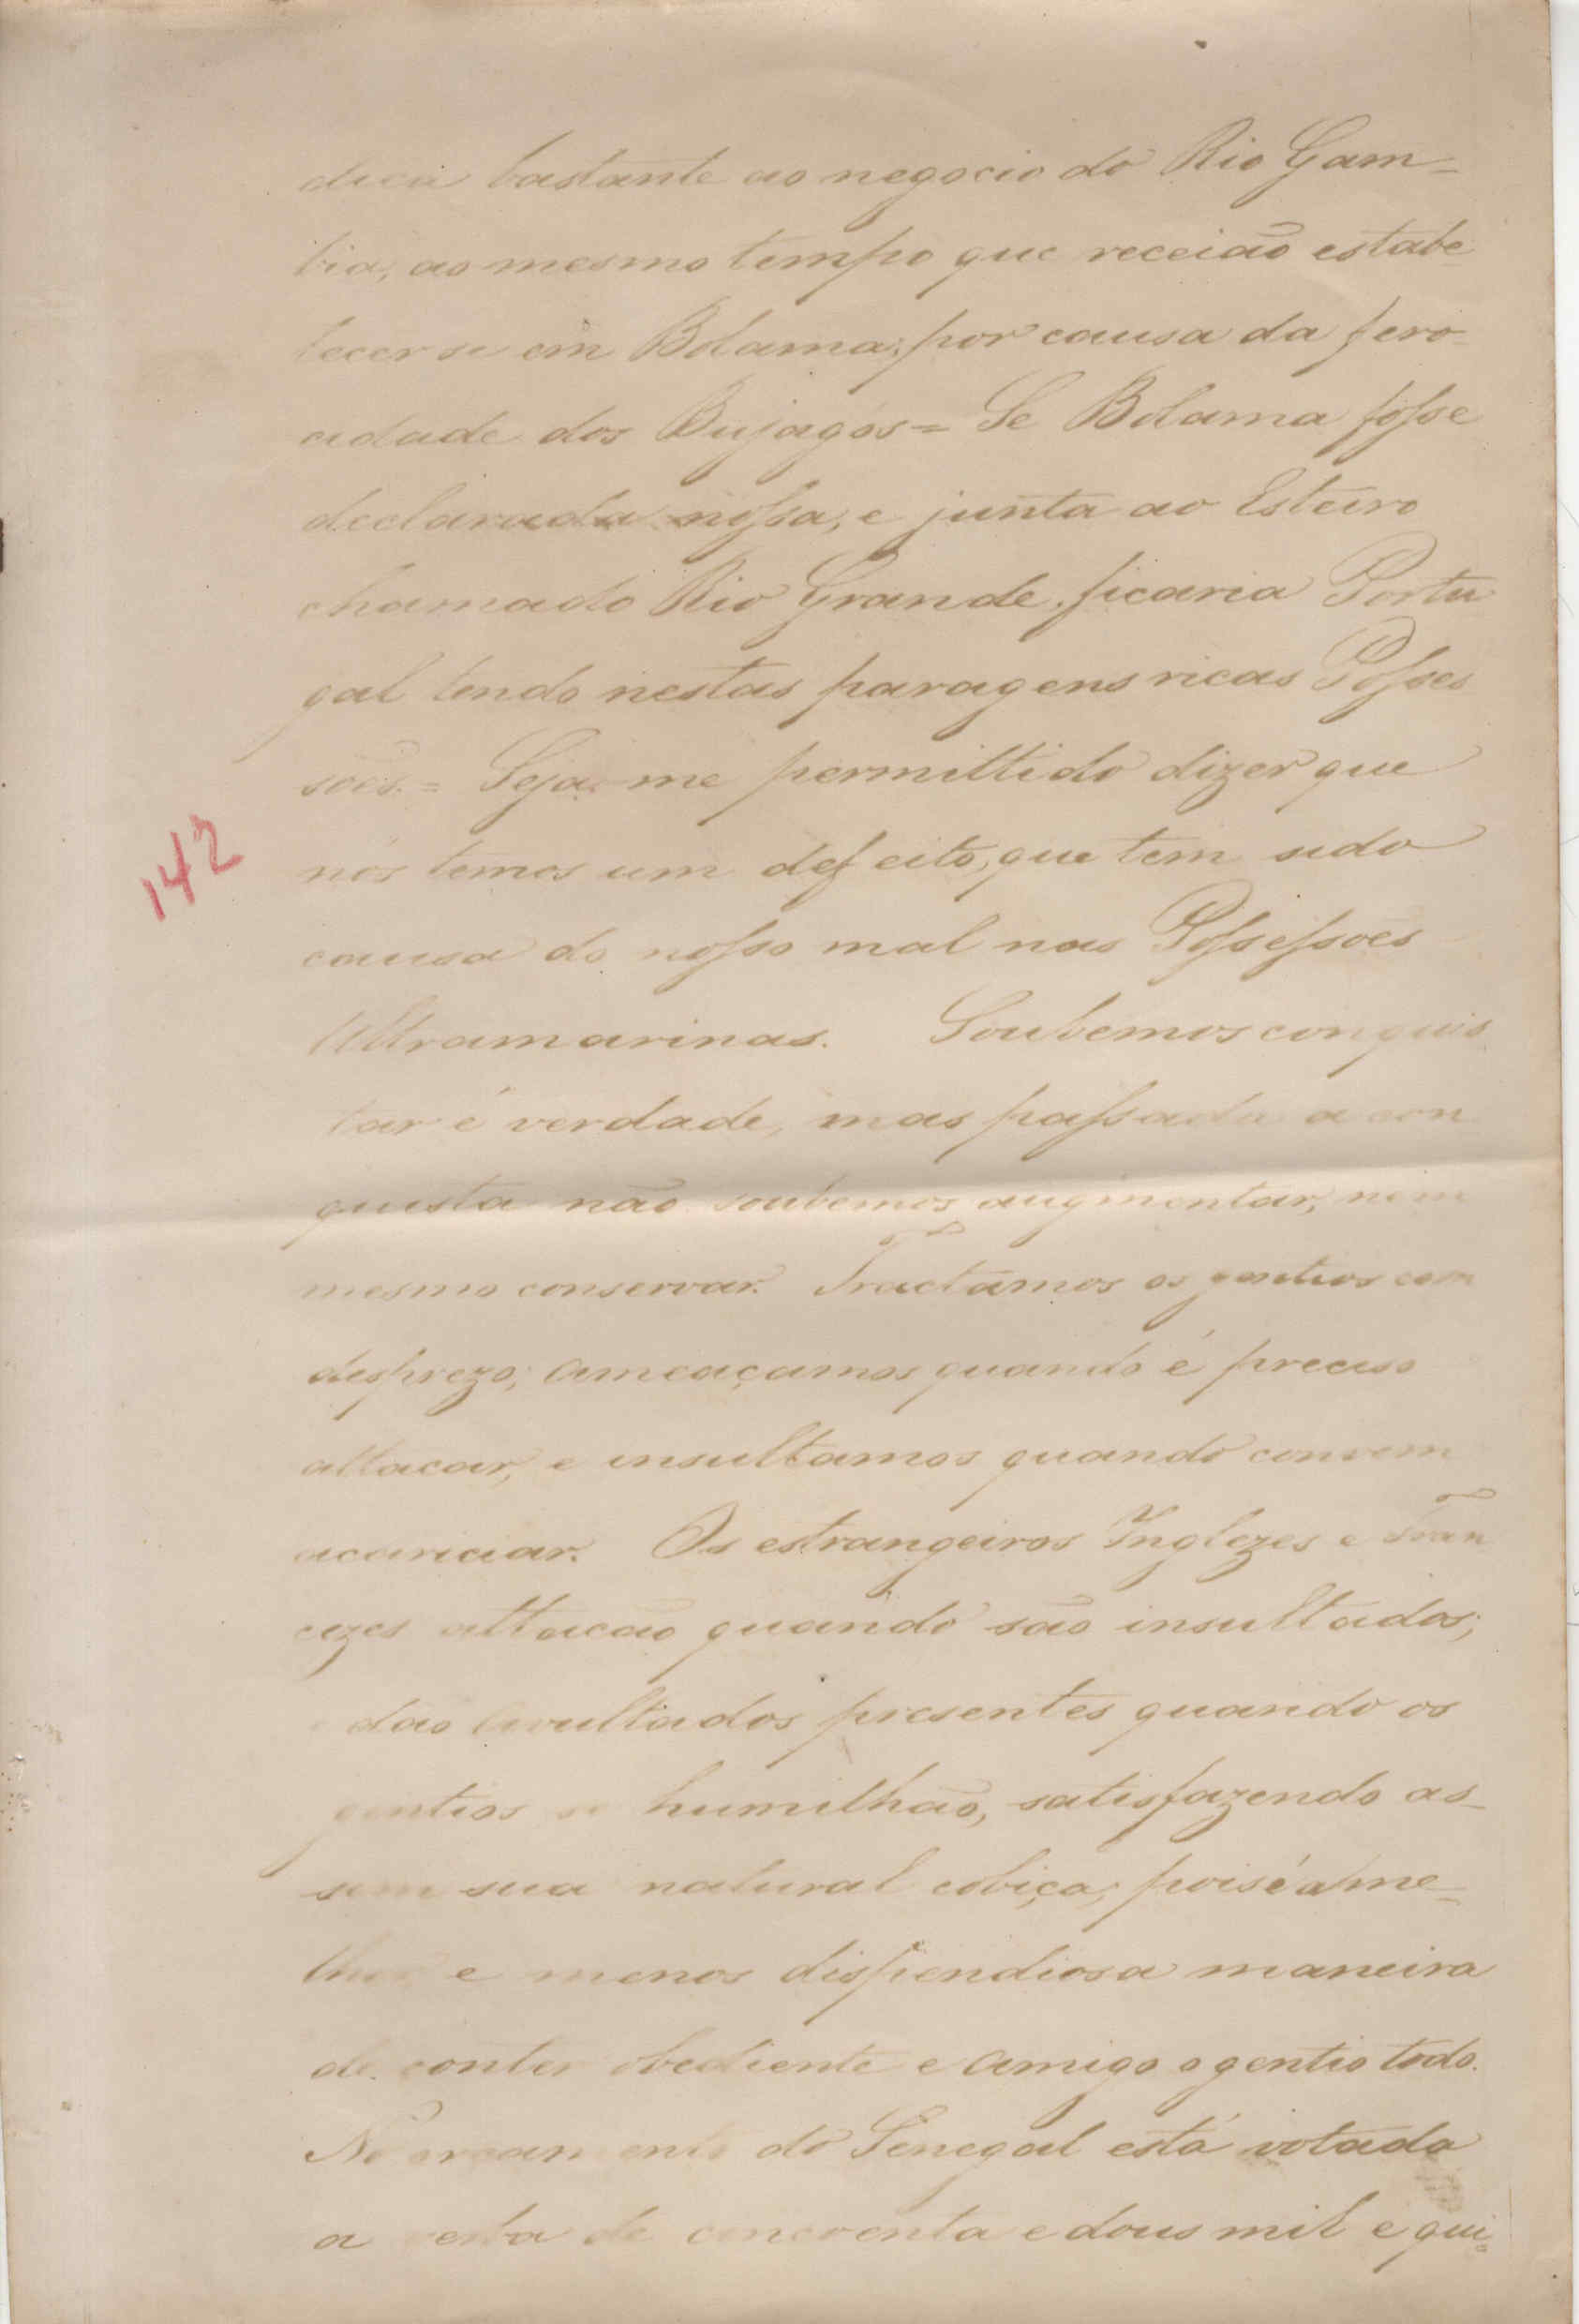 dica bastante ao negocio do Rio Gam=
bia, ao mesmo tempo que receião estabe
lecer se em Bolama, por causa da fero-
cidade dos Bujagós = Se Bolama fosse
declarada nossa, e junta ao Esteiro
chamado Rio Grande, ficaria Portu
gal tendo nestas paragens ricas Posses
soẽs. = Seja-me permittido dizer que
nós temos um defeito, que tem sido
142
causa do nosso mal nas Possessoẽs
Ultramarinas. Soubemos conquis
tar é verdade, mas passada a con
quista não soubemos augmentar, nem
mesmo conservar. Tractamos os gentios com
desprezo; ameaçamos quando é preciso
attacar, e insultamos quando convem
acariciar. Os estrangeiros Inglezes e Fran
cezes attacão quando são insultados;
e dão avultados presentes quando os
gentios se humilhão, satisfazendo as_
sim sua natural cobiça; pois é a me_
lhor e menos dispendiosa maneira
de conter obediente e amigo o gentio todo.
No orçamento do Senegal está votada
a verba de cincoenta e dous mil e qui=